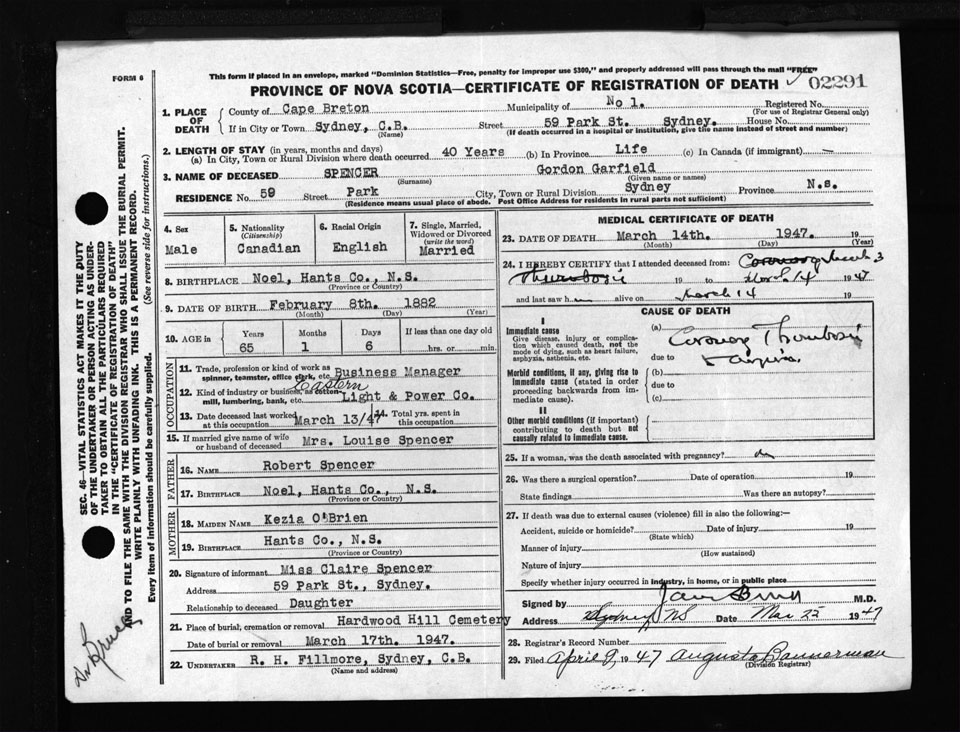 FORM 6
This form if placed in an envelope, marked "Dominion Statistics—Free, penalty for improper use $300," and properly addressed will pass through the mail "FREE"
PROVINCE OF NOVA SCOTIA—CERTIFICATE OF REGISTRATION OF DEATH
02291
1. PLACE OF DEATH
County of Cape Breton Municipality of No 1. Registered No.
(For use of Registrar General only)
If in City or Town Sydney, C.B. Street 59 Park St. Sydney. House No.
(Name) (If death occurred in a hospital or institution, give the name instead of street and number)
2. LENGTH OF STAY (in years, months and days)
(a) In City, Town or Rural Division where death occurred 40 Years (b) In Province Life (c) In Canada (if immigrant) —
3. NAME OF DECEASED SPENCER Gordon Garfield
(Surname) (Given name or names)
RESIDENCE No. 59 Street Park City, Town or Rural Division Sydney Province N.s.
(Residence means usual place of abode. Post Office Address for residents in rural parts not sufficient)
4. Sex
Male
5. Nationality
(Citizenship)
Canadian
6. Racial Origin
English
7. Single, Married, Widowed or Divorced
(write the word)
Married
8. BIRTHPLACE Noel, Hants Co., N.S.
(Province or Country)
9. DATE OF BIRTH February 8th. 1882
(Month) (Day) (Year)
10. AGE in Years Months Days If less than one day old
65 1 6 hrs. or min.
OCCUPATION
11. Trade, profession or kind of work as
spinner, teamster, office clerk, etc. Business Manager
12. Kind of industry or business, as cotton
mill, lumbering, bank, etc. Eastern Light & Power Co.
13. Date deceased last worked at this occupation March 13/47
14. Total yrs. spent in this occupation
15. If married give name of wife or husband of deceased Mrs. Louise Spencer
FATHER
16. NAME Robert Spencer
17. BIRTHPLACE Noel, Hants Co., N.S.
(Province or Country)
MOTHER
18. MAIDEN NAME Kezia O'Brien
19. BIRTHPLACE Hants Co., N.S.
(Province or Country)
20. Signature of informant Miss Claire Spencer
Address 59 Park St., Sydney.
Relationship to deceased Daughter
21. Place of burial, cremation or removal Hardwood Hill Cemetery
Date of burial or removal March 17th. 1947.
22. UNDERTAKER R. H. Fillmore, Sydney, C.B.
(Name and address)
MEDICAL CERTIFICATE OF DEATH
23. DATE OF DEATH March 14th. 1947. 19
(Month) (Day) (Year)
24. I HEREBY CERTIFY that I attended deceased from: Coronary March 3
Thrombosis 19 to March 14 1947
and last saw h alive on March 14 19
CAUSE OF DEATH
I
Immediate cause
Give disease, injury or complication which caused death, not the mode of dying, such as heart failure, asphyxia, asthenia, etc.
(a) Coronary Thrombosis
due to
Morbid conditions, if any, giving rise to immediate cause (stated in order proceeding backwards from immediate cause).
(b)
due to
(c)
II
Other morbid conditions (if important) contributing to death but not causally related to immediate cause.
25. If a woman, was the death associated with pregnancy?
26. Was there a surgical operation? Date of operation 19
State findings Was there an autopsy?
27. If death was due to external causes (violence) fill in also the following:—
Accident, suicide or homicide? Date of injury 19
(State which)
Manner of injury
(How sustained)
Nature of injury
Specify whether injury occurred in industry, in home, or in public place
Signed by M.D.
Address Sydney NS Date Mar 22 1947
28. Registrar's Record Number
29. Filed April 9, 1947 Augusta Bannerman
(Division Registrar)
SEC. 46—VITAL STATISTICS ACT MAKES IT THE DUTY
OF THE UNDERTAKER OR PERSON ACTING AS UNDER-
TAKER TO OBTAIN ALL THE PARTICULARS REQUIRED
IN THE "CERTIFICATE OF REGISTRATION OF DEATH"
AND TO FILE THE SAME WITH THE DIVISION REGISTRAR WHO SHALL ISSUE THE BURIAL PERMIT.
WRITE PLAINLY WITH UNFADING INK. THIS IS A PERMANENT RECORD.
Every item of information should be carefully supplied. (See reverse side for instructions.)
Dr Bruce